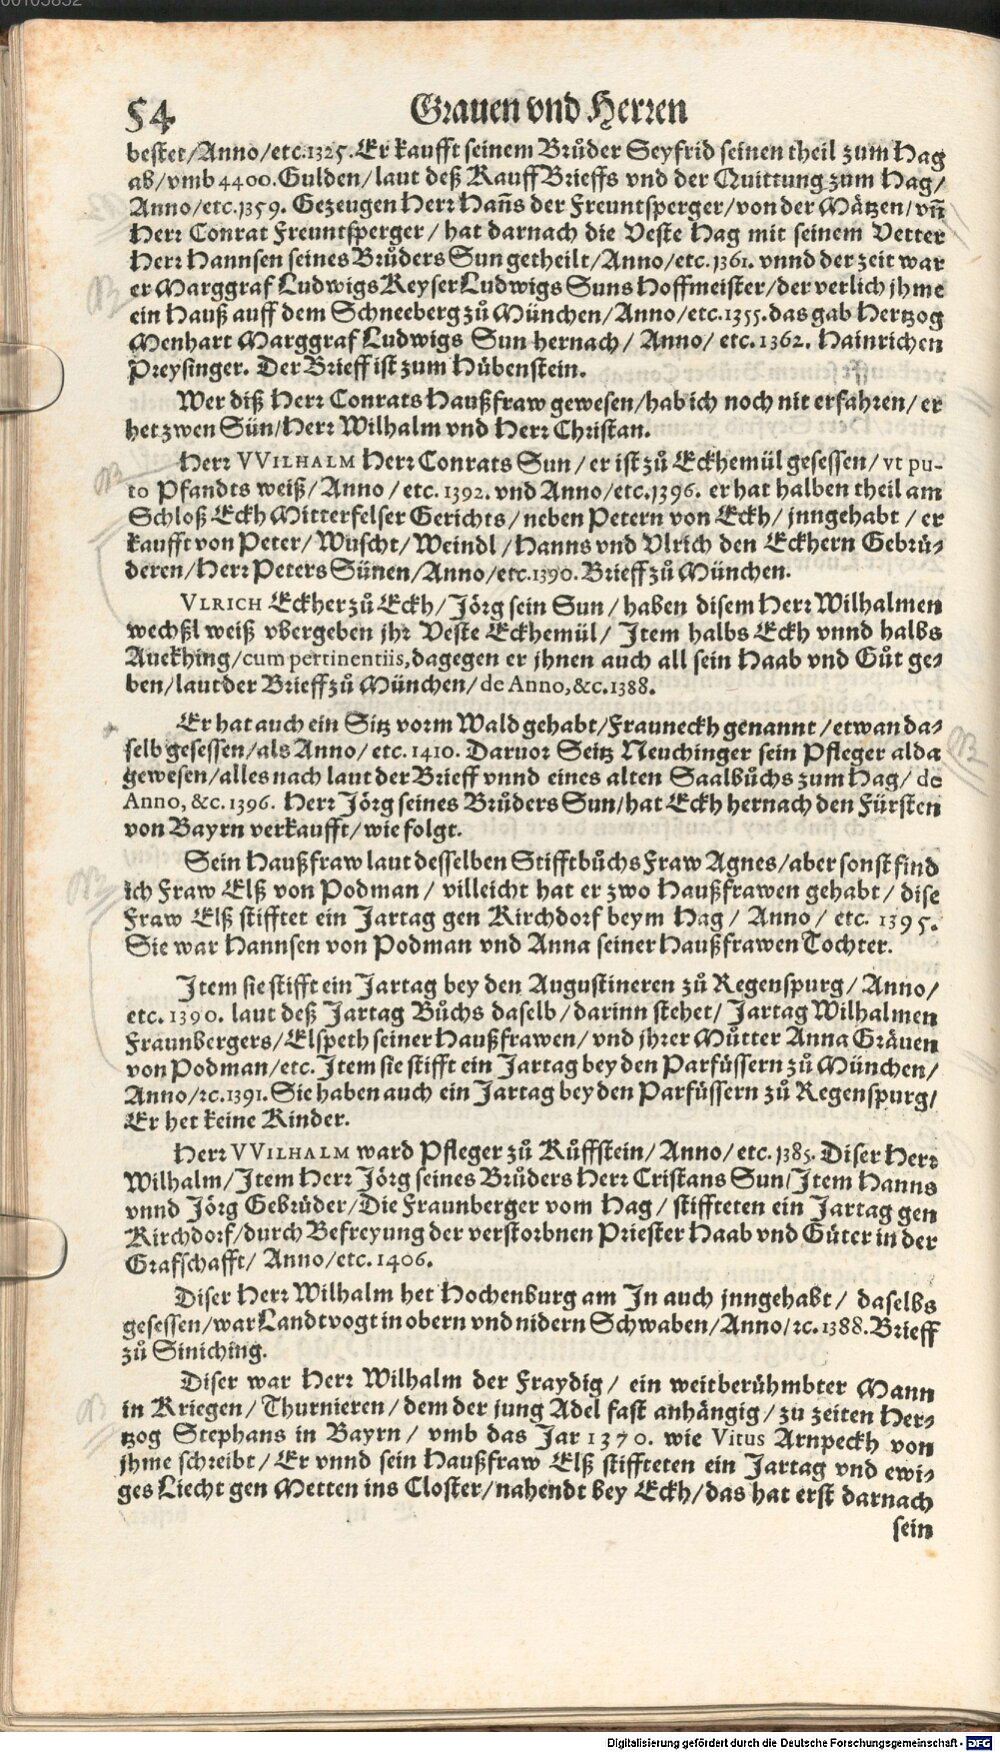 54 Grauen vnd Herren
bestet/Anno/etc.1325. Er kaufft seinem Brůder Seyfrid seinen theil zum Hag
ab/vmb 4400. Gulden/laut deß Kauff Brieffs vnd der Quittung zum Hag/
Anno/etc.1359. Gezeugen Herr Hañs der Freuntsperger/von der Mätzen/vñ
Herr Conrat Freuntsperger/ hat darnach die Veste Hag mit seinem Vetter
Herr Hannsen seines Brůders Sun getheilt/Anno/etc.1361. vnnd der zeit war
er Marggraf Ludwigs Keyser Ludwigs Suns Hoffmeister/der verlich jhme
ein Hauß auff dem Schneeberg zů München/Anno/etc.1355. das gab Hertzog
Menhart Marggraf Ludwigs Sun hernach/ Anno/ etc.1362. Hainrichen
Preysinger. Der Brieff ist zum Hübenstein.
Wer diß Herr Conrats Haußfraw gewesen/hab ich noch nit erfahren/ er
het zwen Sün/Herr Wilhalm vnd Herr Christan.
Herr VVILHALM Herr Conrats Sun/ er ist zů Eckhemül gesessen/ vt pu-
to Pfandts weiß/Anno/ etc. 1392. vnd Anno/etc.1396. er hat halben theil am
Schloß Eckh Mitterfelser Gerichts/neben Petern von Eckh/ jnngehabt/ er
kaufft von Peter/ Wuscht/Weindl/Hanns vnd Vlrich den Eckhern Gebrü-
deren/Herr Peters Sünen/Anno/etc.1390. Brieff zů München.
VLRICH Eckher zů Eckh/Jörg sein Sun/ haben disem Herr Wilhalmen
wechßl weiß vbergeben jhr Veste Eckhemül/ Item halbs Eckh vnnd halbs
Auekhing/cum pertinentiis, dagegen er jhnen auch all sein Haab vnd Gůt ge-
ben/laut der Brieff zů München/ de Anno, &c. 1388.
Er hat auch ein Sitz vorm Wald gehabt/Frauneckh genannt/etwan da-
selb gesessen/als Anno/ etc. 1410. Daruor Seitz Neuchinger sein Pfleger alda
gewesen/alles nach laut der Brieff vnnd eines alten Saalbůchs zum Hag/ de
Anno, &c. 1396. Herr Jörg seines Brůders Sun/hat Eckh hernach den Fürsten
von Bayrn verkaufft/wie folgt.
Sein Haußfraw laut desselben Stifftbůchs Fraw Agnes/aber sonst find
ich Fraw Elß von Podman/ villeicht hat er zwo Haußfrawen gehabt/ dise
Fraw Elß stifftet ein Jartag gen Kirchdorf beym Hag/ Anno/ etc. 1395.
Sie war Hannsen von Podman vnd Anna seiner Haußfrawen Tochter.
Item sie stifft ein Jartag bey den Augustineren zů Regenspurg/ Anno/
etc. 1390. laut deß Jartag Bůchs daselb/darinn stehet/ Jartag Wilhalmen
Fraunbergers/Elspeth seiner Haußfrawen/ vnd jhrer Můtter Anna Gräuen
von Podman/etc. Item sie stifft ein Jartag bey den Parfüssern zů München/
Anno/ꝛc.1391. Sie haben auch ein Jartag bey den Parfüssern zů Regenspurg/
Er het keine Kinder.
Herr VVILHALM ward Pfleger zů Kůffstein/Anno/etc.1385. Diser Herr
Wilhalm/Item Herr Jörg seines Brůders Herr Cristans Sun/Item Hanns
vnnd Jörg Gebrüder/Die Fraunberger vom Hag/ stiffteten ein Jartag gen
Kirchdorf/durch Befreyung der verstorbnen Priester Haab vnd Güter in der
Grafschafft/ Anno/etc. 1406.
Diser Herr Wilhalm het Hochenburg am In auch jnngehabt/ daselbs
gesessen/war Landtvogt in obern vnd nidern Schwaben/Anno/ꝛc.1388. Brieff
zů Siniching.
Diser war Herr Wilhalm der Fraydig/ ein weitberühmbter Mann
in Kriegen/Thurnieren/dem der jung Adel fast anhängig/zu zeiten Her-
tzog Stephans in Bayrn/ vmb das Jar 1370. wie Vitus Arnpeckh von
jhme schreibt/ Er vnnd sein Haußfraw Elß stiffteten ein Jartag vnd ewi-
ges Liecht gen Metten ins Closter/nahendt bey Eckh/das hat erst darnach
sein
Digitalisierung gefördert durch die Deutsche Forschungsgemeinschaft - DFG